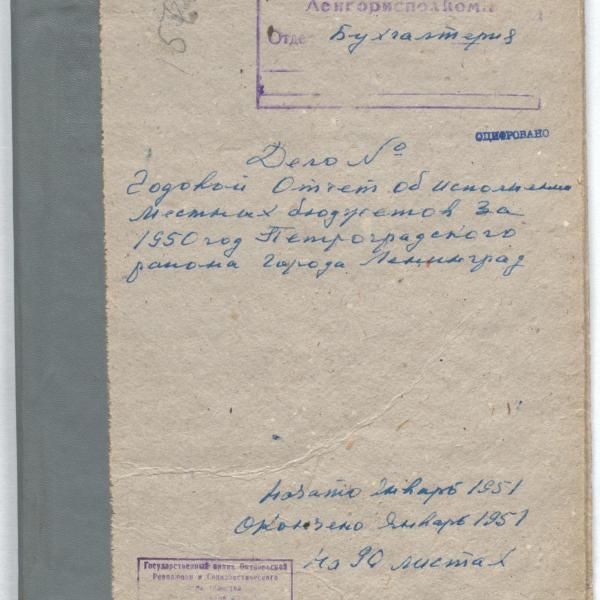 Ленгорисполкома
Отде Бухгалтерия
ОЦИФРОВАНО
Дело №
Годовой Отчет об исполнении
местных бюджетов за
1950 год Петроградского
района города Ленинград
Начато Январь 1951
Окончено Январь 1951
На 90 листах
Государственный архив Октябрьской
Революции и Социалистического